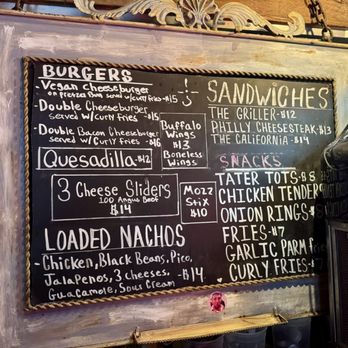 BURGERS
- Vegan Cheeseburger
on pretzel bun served w/curly fries -$15
- Double Cheeseburger
served w/ curly fries -$15
- Double Bacon Cheeseburger
served w/ curly fries -$16
Quesadilla -$12
Buffalo
Wings
$13
Boneless
Wings
3 Cheese Sliders
100 Angus Beef
$14
Mozz
Stix
$10
LOADED NACHOS
- Chicken, Black Beans, Pico,
Jalapenos, 3 cheeses,
Guacamole, Sour Cream
-$14
SANDWICHES
THE GRILLER -$12
PHILLY CHEESESTEAK -$13
THE CALIFORNIA -$14
SNACKS
TATER TOTS -$8
CHICKEN TENDERS
ONION RINGS -$
FRIES -$7
GARLIC PARM
CURLY FRIES -$